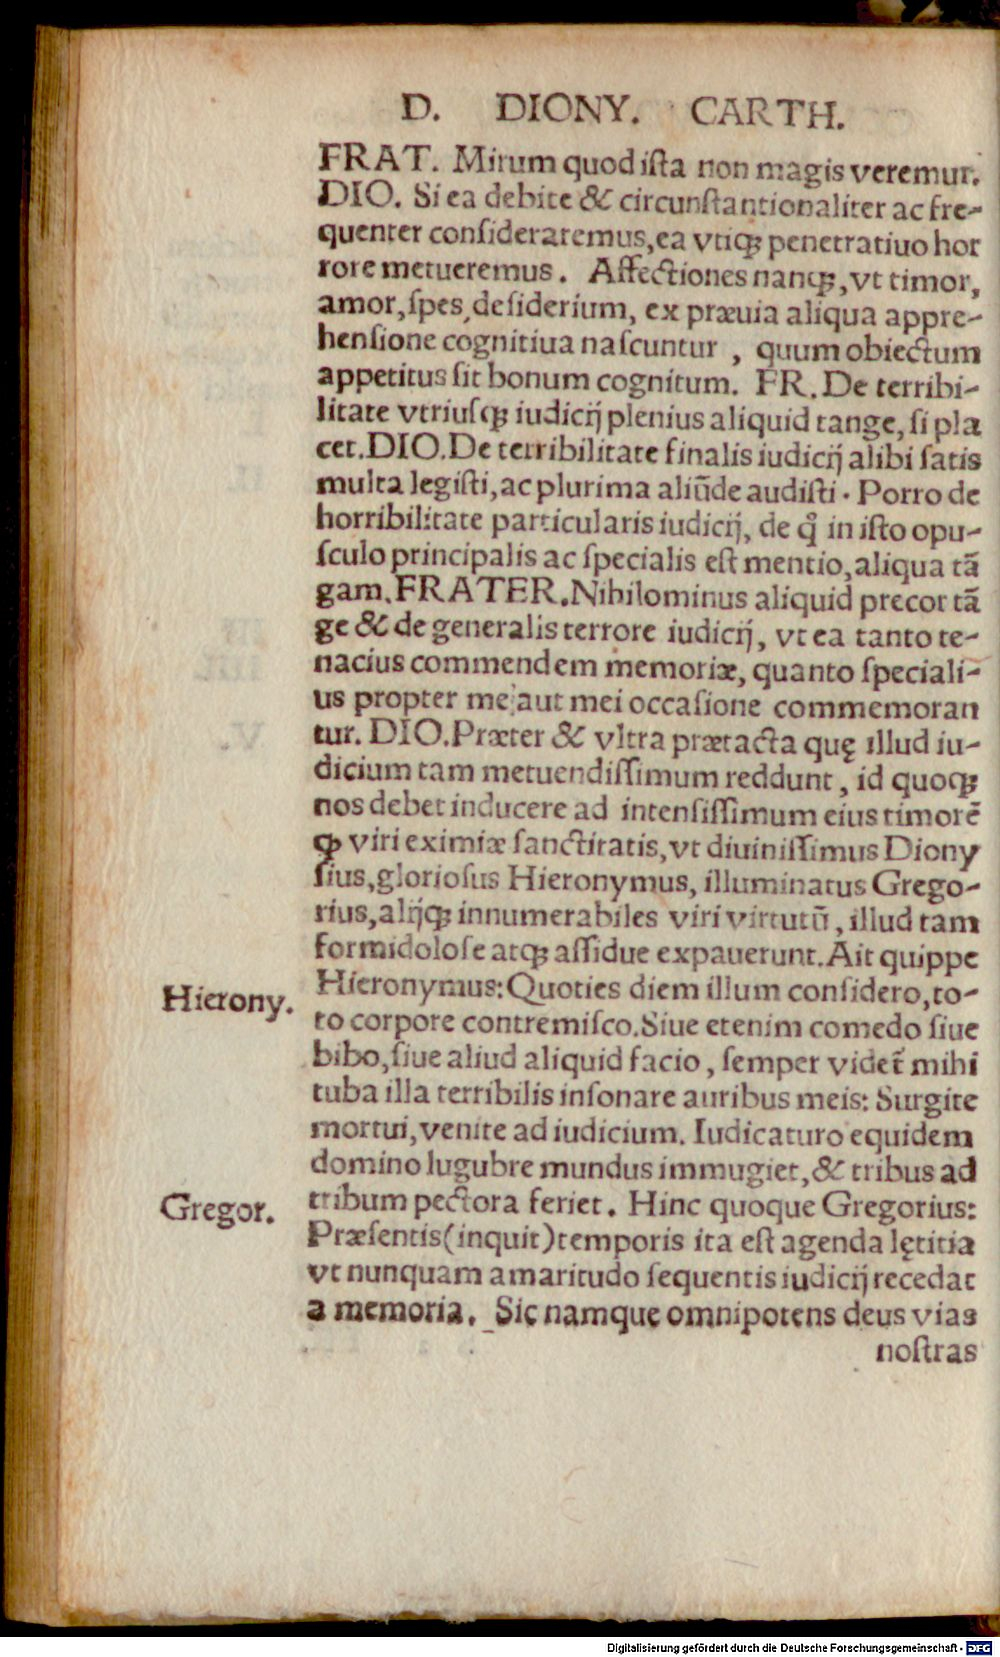 D. DIONY. CARTH.
FRAT. Mirum quod iſta non magis veremur.
DIO. Si ea debite & circunſtantionaliter ac fre-
quenter conſideraremus, ea vtiqꝫ penetratiuo hor
rore metueremus. Affectiones nanqꝫ, vt timor,
amor, ſpes, deſiderium, ex præuia aliqua appre-
henſione cognitiua naſcuntur, quum obiectum
appetitus ſit bonum cognitum. FR. De terribi-
litate vtriuſqꝫ iudicij plenius aliquid tange, ſi pla
cet. DIO. De terribilitate finalis iudicij alibi ſatis
multa legiſti, ac plurima aliūde audiſti. Porro de
horribilitate particularis iudicij, de q̊ in iſto opu-
ſculo principalis ac ſpecialis eſt mentio, aliqua tā
gam. FRATER. Nihilominus aliquid precor tā
ge & de generalis terrore iudicij, vt ea tanto te-
nacius commendem memoriæ, quanto ſpeciali-
us propter me aut mei occaſione commemoran
tur. DIO. Præter & vltra prætacta quę illud iu-
dicium tam metuendiſſimum reddunt, id quoqꝫ
nos debet inducere ad intenſiſſimum eius timorē
qꝫ viri eximiæ ſanctitatis, vt diuiniſſimus Diony
ſius, glorioſus Hieronymus, illuminatus Grego-
rius, alijqꝫ innumerabiles viri virtutū, illud tam
formidoloſe atqꝫ aſſidue expauerunt. Ait quippe
Hierony.
Hieronymus: Quoties diem illum conſidero, to-
to corpore contremiſco. Siue etenim comedo ſiue
bibo, ſiue aliud aliquid facio, ſemper videt᷑ mihi
tuba illa terribilis inſonare auribus meis: Surgite
mortui, venite ad iudicium. Iudicaturo equidem
domino lugubre mundus immugiet, & tribus ad
Gregor.
tribum pectora feriet. Hinc quoque Gregorius:
Præſentis (inquit) temporis ita eſt agenda lętitia
vt nunquam amaritudo ſequentis iudicij recedat
a memoria. Sic namque omnipotens deus vias
noſtras
Digitalisierung gefördert durch die Deutsche Forschungsgemeinschaft - DFG